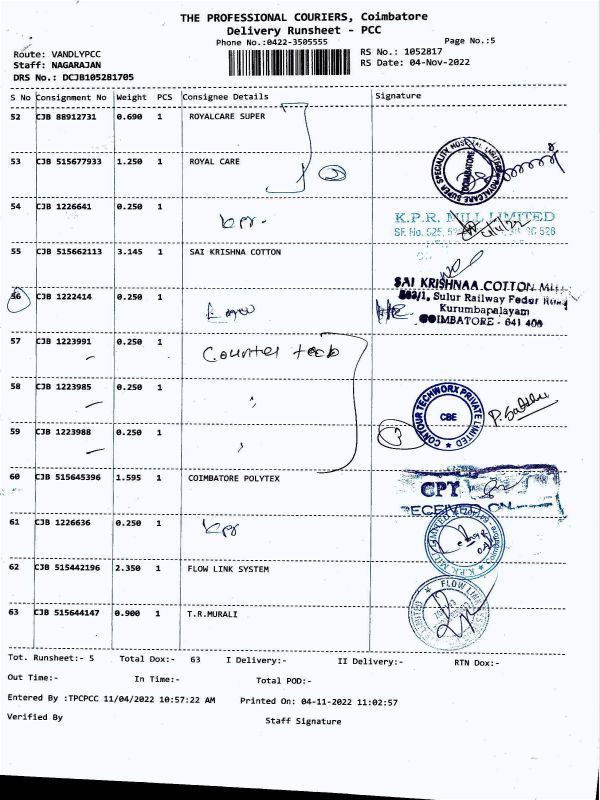 THE PROFESSIONAL COURIERS, Coimbatore
Delivery Runsheet - PCC
Phone No.:0422-3505555
Page No.:5
Route: VANDLYPCC
RS No.: 1052817
Staff: NAGARAJAN
RS Date: 04-Nov-2022
DRS No.: DCJB105281705
S No Consignment No Weight PCS Consignee Details Signature
52 CJB 88912731 0.690 1 ROYALCARE SUPER
53 CJB 515677933 1.250 1 ROYAL CARE
ROYALCARE SUPER SPECIALITY HOSPITAL LIMITED
COIMBATORE
54 CJB 1226641 0.250 1 kpr.
K.P.R. MILL LIMITED
SF. No. 525,
55 CJB 515662113 3.145 1 SAI KRISHNA COTTON
SAI KRISHNAA COTTON
563/1, Sulur Railway Feder Road
Kurumbapalayam
COIMBATORE - 641 400
56 CJB 1222414 0.250 1
57 CJB 1223991 0.250 1 Counter tech
58 CJB 1223985 0.250 1 "
CONTOUR TECHWORX PRIVATE LIMITED
CBE
59 CJB 1223988 0.250 1 "
3
60 CJB 515645396 1.595 1 COIMBATORE POLYTEX
CPT
RECEIVED ON
61 CJB 1226636 0.250 1 kpr
62 CJB 515442196 2.350 1 FLOW LINK SYSTEM
FLOW LINK
63 CJB 515644147 0.900 1 T.R.MURALI
Tot. Runsheet:- 5 Total Dox:- 63 I Delivery:- II Delivery:- RTN Dox:-
Out Time:- In Time:- Total POD:-
Entered By :TPCPCC 11/04/2022 10:57:22 AM Printed On: 04-11-2022 11:02:57
Verified By Staff Signature